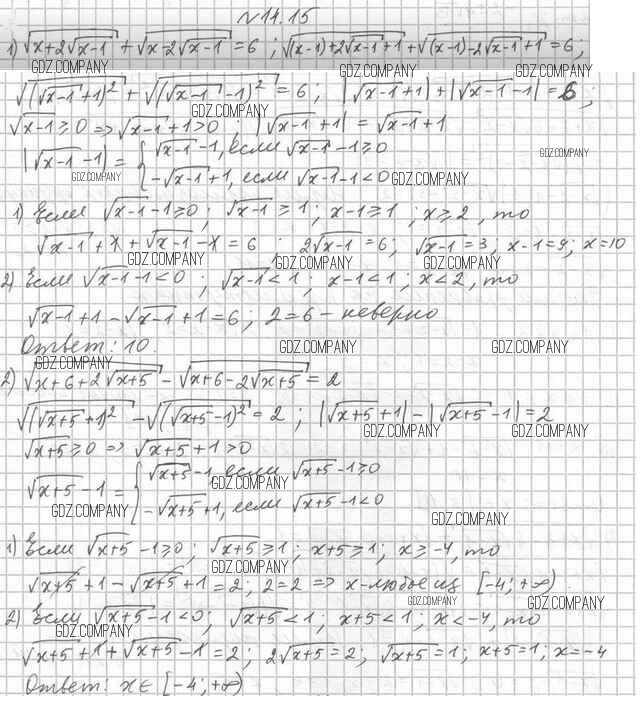 №14.15
1) √(x+2√(x-1)) + √(x-2√(x-1)) = 6 ; √((x-1)+2√(x-1)+1) + √((x-1)-2√(x-1)+1) = 6 ;
GDZ.COMPANY GDZ.COMPANY GDZ.COMPANY
√((√(x-1)+1)²) + √((√(x-1)-1)²) = 6 ; |√(x-1)+1| + |√(x-1)-1| = 6 ;
GDZ.COMPANY
√(x-1) ≥ 0 => √(x-1)+1 > 0 ; |√(x-1)+1| = √(x-1)+1
|√(x-1)-1| = { √(x-1)-1, если √(x-1)-1 ≥ 0
GDZ.COMPANY
-√(x-1)+1, если √(x-1)-1 < 0
GDZ.COMPANY GDZ.COMPANY
1) Если √(x-1)-1 ≥ 0 ; √(x-1) ≥ 1 ; x-1 ≥ 1 ; x ≥ 2, то
√(x-1)+1+√(x-1)-1 = 6 ; 2√(x-1) = 6 ; √(x-1) = 3 ; x-1 = 9 ; x = 10
GDZ.COMPANY GDZ.COMPANY GDZ.COMPANY
2) Если √(x-1)-1 < 0 ; √(x-1) < 1 ; x-1 < 1 ; x < 2, то
√(x-1)+1-√(x-1)+1 = 6 ; 2 = 6 - неверно
Ответ: 10.
GDZ.COMPANY GDZ.COMPANY
GDZ.COMPANY
2) √(x+6+2√(x+5)) - √(x+6-2√(x+5)) = 2
√((√(x+5)+1)²) - √((√(x+5)-1)²) = 2 ; |√(x+5)+1| - |√(x+5)-1| = 2
GDZ.COMPANY GDZ.COMPANY
√(x+5) ≥ 0 => √(x+5)+1 > 0
√(x+5)-1 = { √(x+5)-1, если √(x+5)-1 ≥ 0
GDZ.COMPANY
-√(x+5)+1, если √(x+5)-1 < 0
GDZ.COMPANY GDZ.COMPANY
1) Если √(x+5)-1 ≥ 0 ; √(x+5) ≥ 1 ; x+5 ≥ 1 ; x ≥ -4, то
GDZ.COMPANY
√(x+5)+1-√(x+5)+1 = 2 ; 2 = 2 => x - любое из [-4; +∞)
GDZ.COMPANY GDZ.COMPANY
2) Если √(x+5)-1 < 0 ; √(x+5) < 1 ; x+5 < 1 ; x < -4, то
GDZ.COMPANY
√(x+5)+1+√(x+5)-1 = 2 ; 2√(x+5) = 2 ; √(x+5) = 1 ; x+5 = 1 ; x = -4
Ответ: x ∈ [-4; +∞)